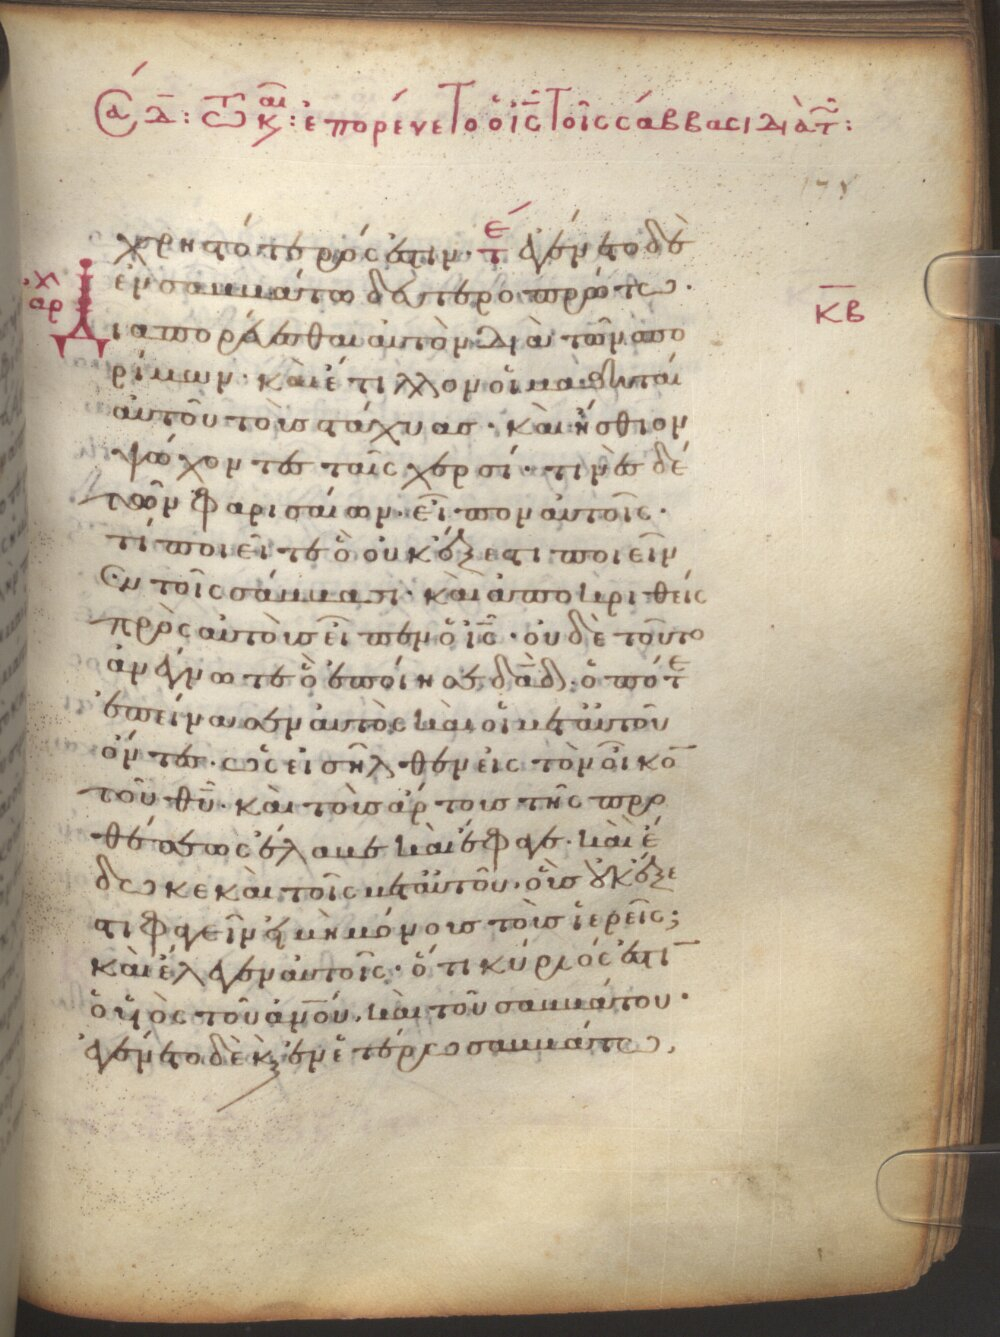 Σα δ: τῶ κ: ἐπορεύετο ὁ ἰς τοῖς σάββασι διὰ τ:
χρηστότερός ἐστιν· τ ἐγένετο δὲ
ἐν σαββάτω δευτεροπρώτω·
αρ
κβ
Διαπορεύεσθαι αὐτὸν διὰ τῶν σπο
ρίμων· καὶ ἔτιλλον οἱ μαθηταὶ
αὐτοῦ τοὺς στάχυας· καὶ ἤσθιον
ψώχοντες ταῖς χερσί· τινὲς δὲ
τῶν φαρισαίων· εἶπον αὐτοῖς·
τί ποιεῖτε ὃ οὐκ ἔξεστι ποιεῖν
ἐν τοῖς σάββασι· καὶ ἀποκριθεὶς
πρὸς αὐτοὺς εἶπεν ὁ ἰς· οὐδὲ τοῦτο
ἀνέγνωτε ὃ ἐποίησε δαδ· ὁπότε
ἐπείνασεν αὐτὸς καὶ οἱ μετ αὐτοῦ
ὄντες· ὡς εἰσῆλθεν εἰς τὸν οἶκο
τοῦ θυ· καὶ τοὺς ἄρτους τῆς προ
θέσεως ἔλαβε καὶ ἔφαγε· καὶ ἔ
δωκε καὶ τοῖς μετ αὐτοῦ· οὓς οὐκ ἔξε
στι φαγεῖν εἰ μὴ μόνους τοὺς ἱερεῖς;
καὶ ἔλεγεν αὐτοῖς· ὅτι κύριός ἐστι
ὁ υἱὸς τοῦ ανου· καὶ τοῦ σαββάτου·
ἐγένετο δὲ κ ἐν ἑτέρω σαββάτω,